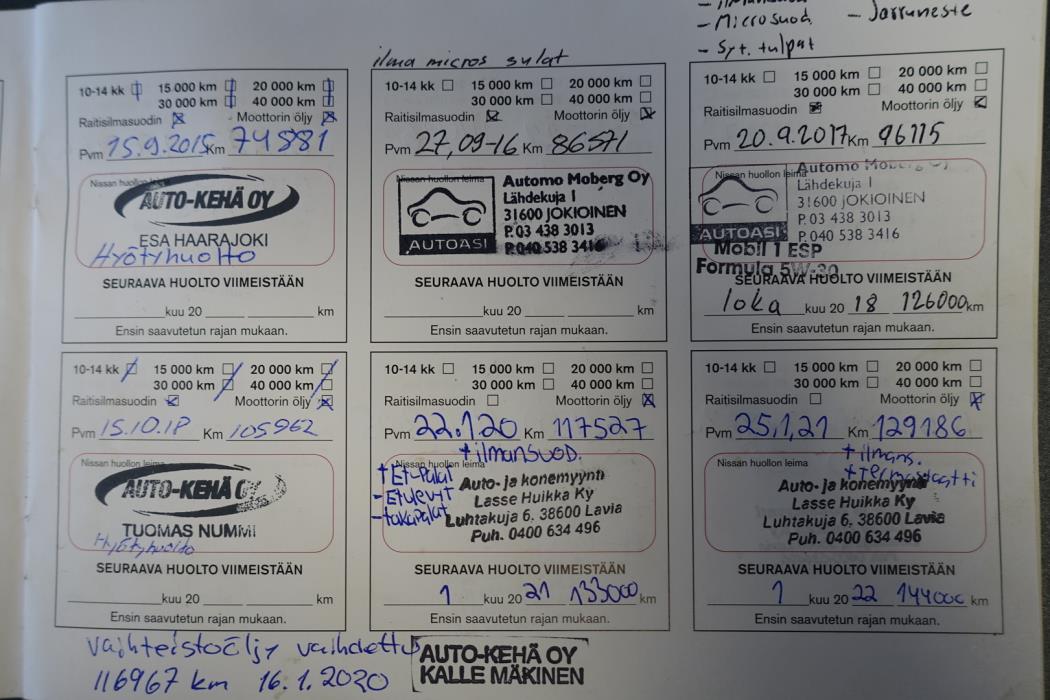 - Microsuod. - Jarruneste
- Syt. tulpat
10-14 kk 15 000 km 20 000 km
30 000 km 40 000 km
Raitisilmasuodin Moottorin öljy
Pvm 15.9.2015 Km 74881
Nissan huollon leima
AUTO-KEHÄ OY
ESA HAARAJOKI
Hyötyhuolto
SEURAAVA HUOLTO VIIMEISTÄÄN
kuu 20 km
Ensin saavutetun rajan mukaan.
ilma micros sulat
10-14 kk 15 000 km 20 000 km
30 000 km 40 000 km
Raitisilmasuodin Moottorin öljy
Pvm 27,09-16 Km 86571
Nissan huollon leima
Automo Moberg Oy
Lähdekuja 1
31600 JOKIOINEN
P.03 438 3013
P.040 538 3416
AUTOASI
SEURAAVA HUOLTO VIIMEISTÄÄN
kuu 20 km
Ensin saavutetun rajan mukaan.
10-14 kk 15 000 km 20 000 km
30 000 km 40 000 km
Raitisilmasuodin Moottorin öljy
Pvm 20.9.2017 Km 96115
Nissan huollon leima
Automo Moberg Oy
Lähdekuja 1
31600 JOKIOINEN
P.03 438 3013
P.040 538 3416
AUTOASI
Mobil 1 ESP
Formula 5W-30
SEURAAVA HUOLTO VIIMEISTÄÄN
loka kuu 20 18 126000 km
Ensin saavutetun rajan mukaan.
10-14 kk 15 000 km 20 000 km
30 000 km 40 000 km
Raitisilmasuodin Moottorin öljy
Pvm 15.10.18 Km 105962
Nissan huollon leima
AUTO-KEHÄ OY
TUOMAS NUMMI
Hyötyhuolto
SEURAAVA HUOLTO VIIMEISTÄÄN
kuu 20 km
Ensin saavutetun rajan mukaan.
10-14 kk 15 000 km 20 000 km
30 000 km 40 000 km
Raitisilmasuodin Moottorin öljy
Pvm 22.1.20 Km 117527
+ ilmansuod.
Nissan huollon leima
+ Etupalat
- Etulevyt
- takapalat
Auto- ja konemyynti
Lasse Huikka Ky
Luhtakuja 6, 38600 Lavia
Puh. 0400 634 496
SEURAAVA HUOLTO VIIMEISTÄÄN
1 kuu 20 21 133000 km
Ensin saavutetun rajan mukaan.
10-14 kk 15 000 km 20 000 km
30 000 km 40 000 km
Raitisilmasuodin Moottorin öljy
Pvm 25,1,21 Km 129186
+ ilmans.
Nissan huollon leima
+ Termostaatti
Auto- ja konemyynti
Lasse Huikka Ky
Luhtakuja 6, 38600 Lavia
Puh. 0400 634 496
SEURAAVA HUOLTO VIIMEISTÄÄN
1 kuu 20 22 144000 km
Ensin saavutetun rajan mukaan.
Vaihteistoöljy vaihdettu
116967 km 16.1.2020
AUTO-KEHÄ OY
KALLE MÄKINEN